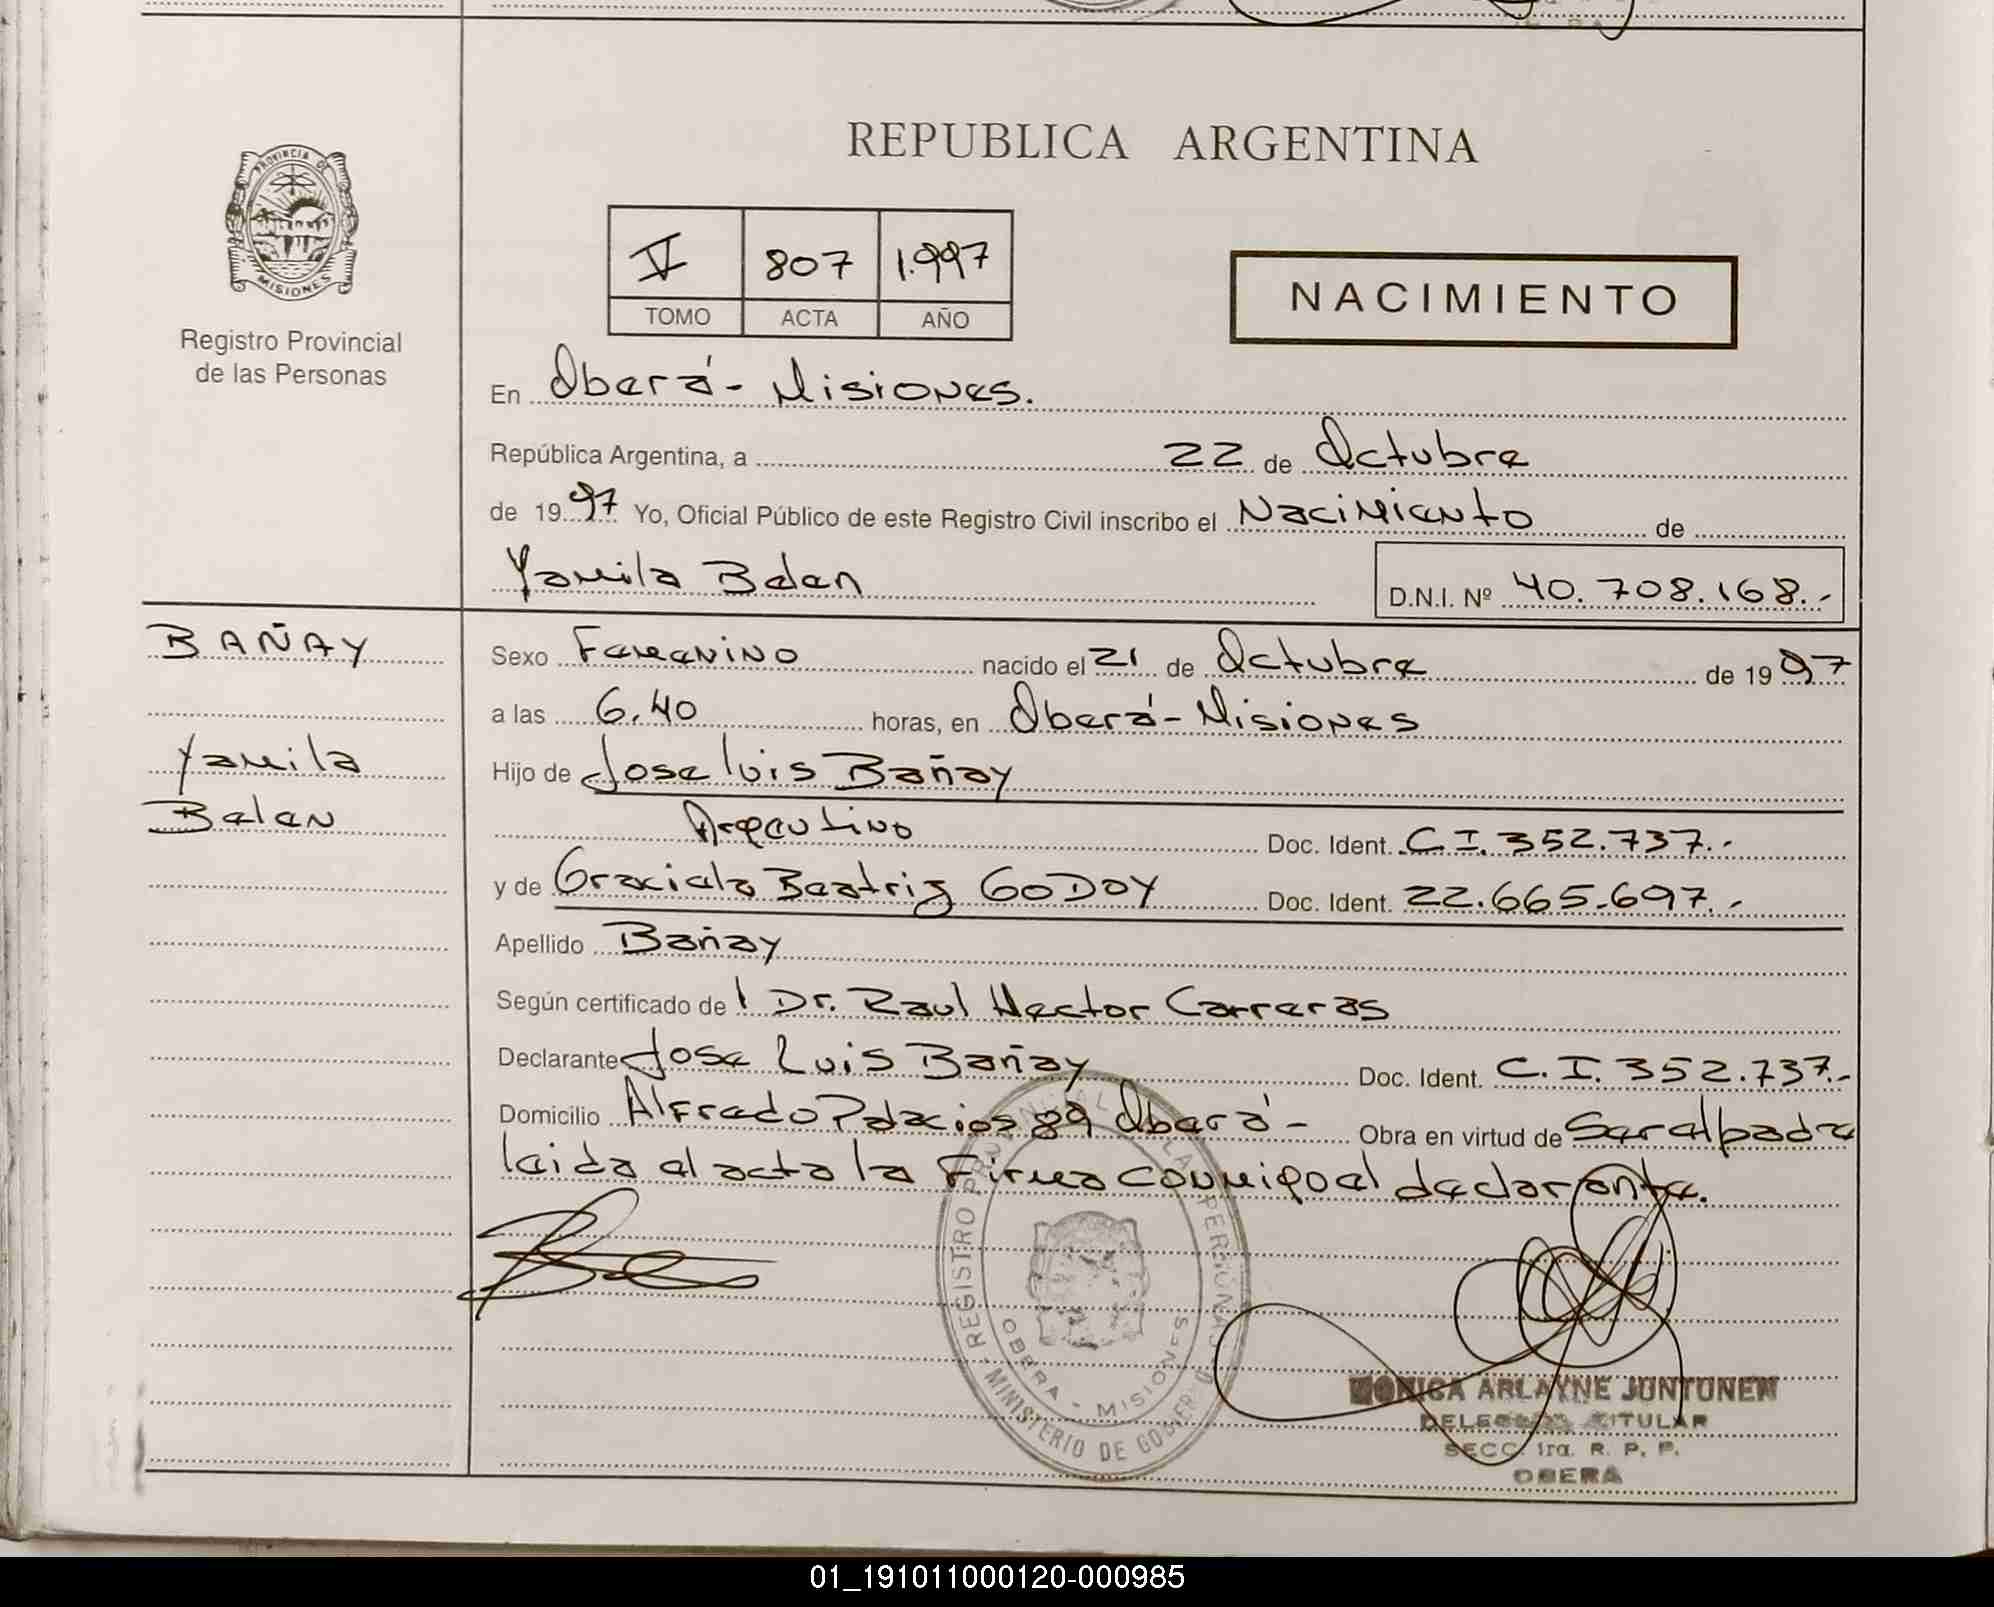 REPUBLICA ARGENTINA
PROVINCIA DE
MISIONES
Registro Provincial
de las Personas
V 807 1.997
TOMO ACTA AÑO
NACIMIENTO
En Oberá - Misiones.
República Argentina, a 22 de Octubre
de 1997 Yo, Oficial Público de este Registro Civil inscribo el Nacimiento de
Yamila Belen D.N.I. Nº 40.708.168.-
BAÑAY
Yamila
Belen
Sexo Femenino nacido el 21 de Octubre de 1997
a las 6.40 horas, en Oberá - Misiones
Hijo de Jose luis Bañay
Argentino Doc. Ident. C.I. 352.737.-
y de Graciela Beatriz GODOY Doc. Ident. 22.665.697.-
Apellido Bañay
Según certificado de l Dr. Raul Hector Carreras
Declarante Jose Luis Bañay Doc. Ident. C.I. 352.737.-
Domicilio Alfredo Palacios 89 Oberá - Obra en virtud de Ser el padre
leida el acta la Firma conmigo el declarante.
REGISTRO PROVINCIAL DE LAS PERSONAS
OBERA - MISIONES
MINISTERIO DE GOBIERNO
MONICA ARLAYNE JUNTUNEN
DELEGADA TITULAR
SECC. 1ra. R. P. P.
OBERA
01_191011000120-000985